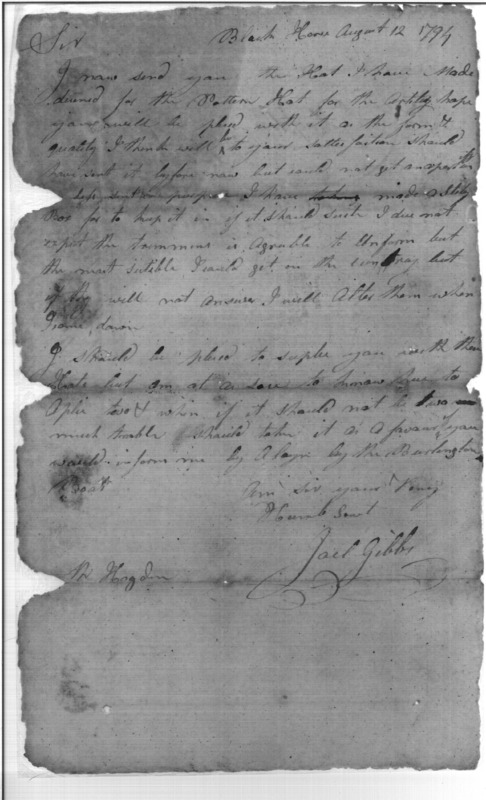 Sir Black Horse August 12 1794
I now send you the Hat I have Made
desined for the Pattern Hat for the hope
you will be plesd with it as the form &
quality I think will be to your sattesfaition Should
have sent it before now but could not get an
I have made a
Box for to keep it in if it should suite I dus not
expect the trimmins is Agreable to Uniform but
the most sutible I could get in the but
if they will not answer I will Alter them when
I come down
I should be plesd to suplie you with them
Hats but am at a to know how to
Aplie & when if it should not be two
much truble I should take it as a if you
would inform me by A by the Burlington
Boat Am sir your Very
Humb Servt
Joel Gibbs
Mr Hogdon